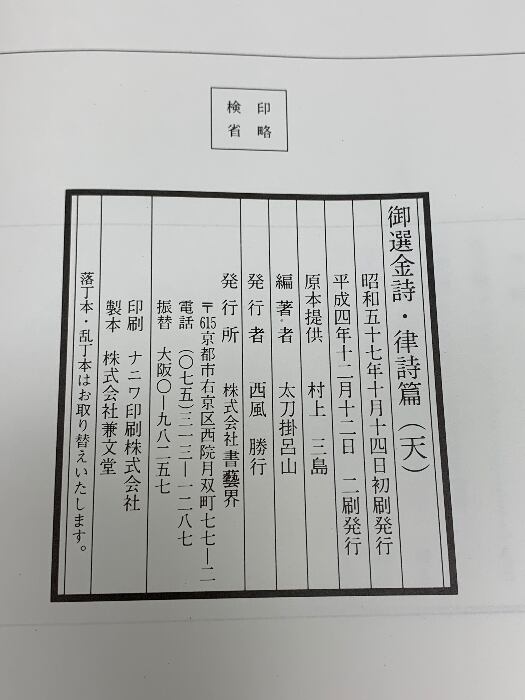 検印
省略
御選金詩・律詩篇（天）
昭和五十七年十月十四日初刷発行
平成四年十二月十二日　二刷発行
原本提供　村上三島
編著者　太刀掛呂山
発行者　西風勝行
発行所　株式会社書藝界
〒615京都市右京区西院月双町七七―二
電話（〇七五）三一三―一二八七
振替　大阪〇―九八二五七
印刷　ナニワ印刷株式会社
製本　株式会社兼文堂
落丁本・乱丁本はお取り替えいたします。